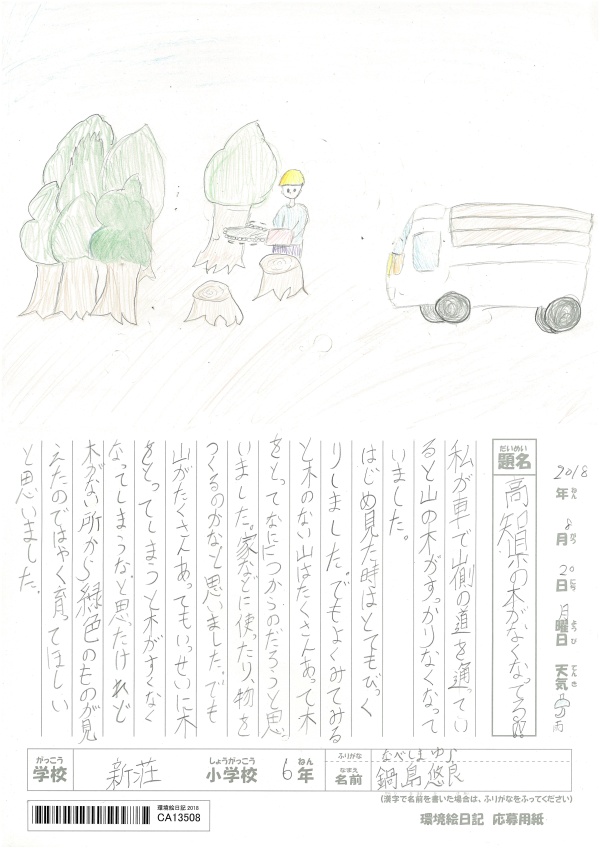 2018年ねん 8月がつ 20日にち 月曜日ようび 天気てんき
題名だいめい 高知県の木がなくなってる!!
私が車で山側の道を通ってい
ると山の木がすっかりなくなって
いました。
はじめ見た時はとてもびっく
りしました。でもよくみてみる
と木のない山はたくさんあって木
をとってなににつかうのだろうと思
いました。家などに使ったり、物を
つくるのかなと思いました。でも
山がたくさんあってもいっせいに木
をとってしまうと木がすくなく
なってしまうなと思ったけれど
木がない所から緑色のものが見
えたのではやく育ってほしい
と思いました。
がっこう
学校 新荘 しょうがっこう
小学校 6 ねん
年
ふりがな なべしま ゆら
なまえ
名前 鍋島悠良
(漢字で名前を書いた場合は、ふりがなをふってください)
環境絵日記 2018
CA13508
環境絵日記 応募用紙